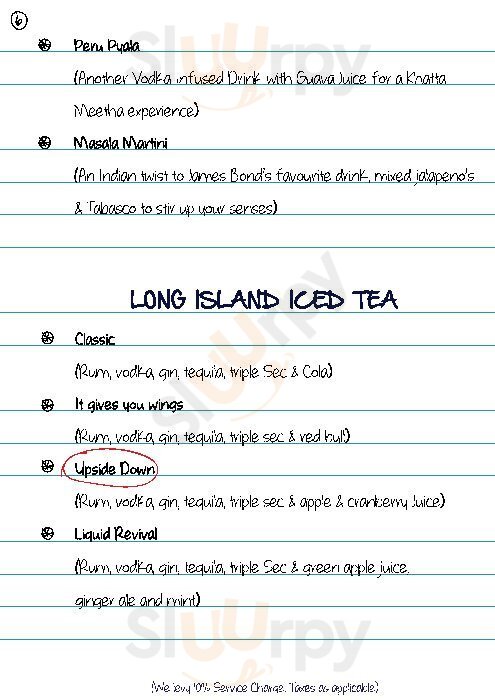 6
Peru Pyala
(Another Vodka infused Drink with Guava Juice for a Khatta
Meetha experience)
Masala Martini
(An Indian twist to James Bond's favourite drink, mixed jalapeno's
& Tabasco to stir up your senses)
LONG ISLAND ICED TEA
Classic
(Rum, vodka, gin, tequila, triple Sec & Cola)
It gives you wings
(Rum, vodka, gin, tequila, triple sec & red bull)
Upside Down
(Rum, vodka, gin, tequila, triple sec & apple & cranberry Juice)
Liquid Revival
(Rum, vodka, gin, tequila, triple Sec & green apple juice,
ginger ale and mint)
(We levy 10% Service Charge. Taxes as applicable)
Sluurpy
Sluurpy
Sluurpy